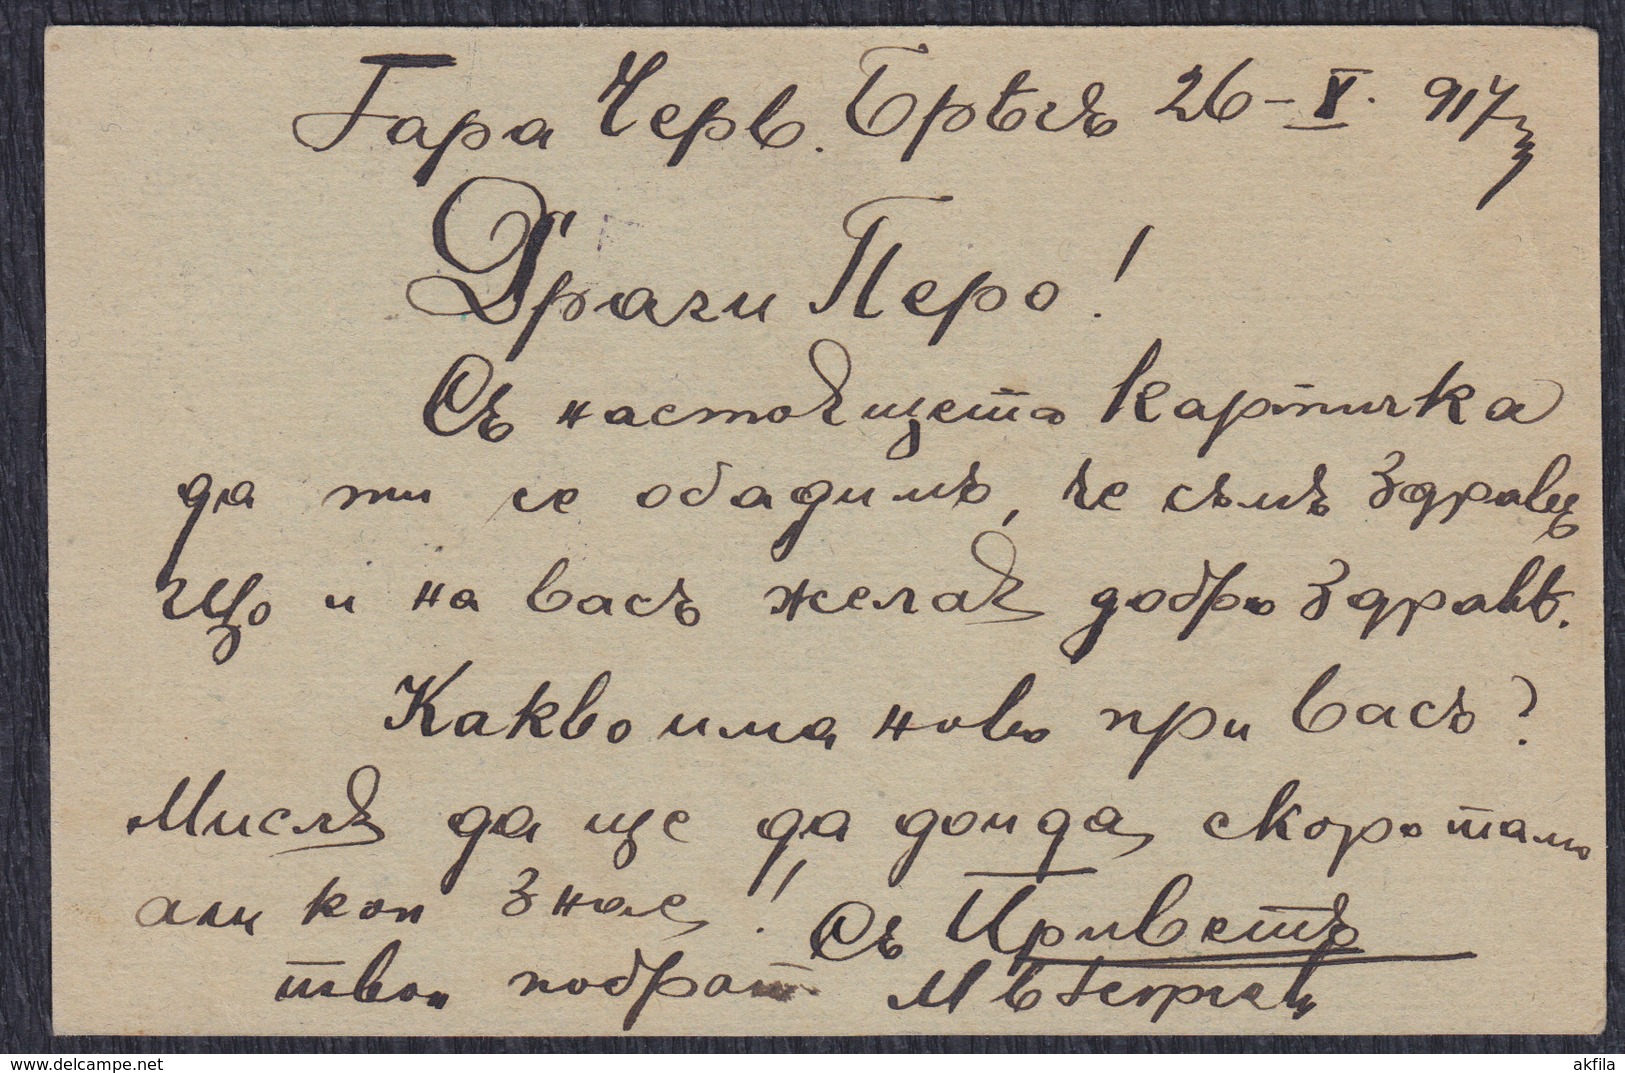 Гара Черв. Брѣгъ 26–X. 917
Драги Перо!
Съ настоѫщето картичка
да ти се обадимъ, че съмъ здравъ
що и на васъ желаѫ добро здравѣ.
Какво има ново при васъ?
Мислѫ да ще да доида скоро тамо
али кои знае! Съ Приветъ
твои побрат
akfila